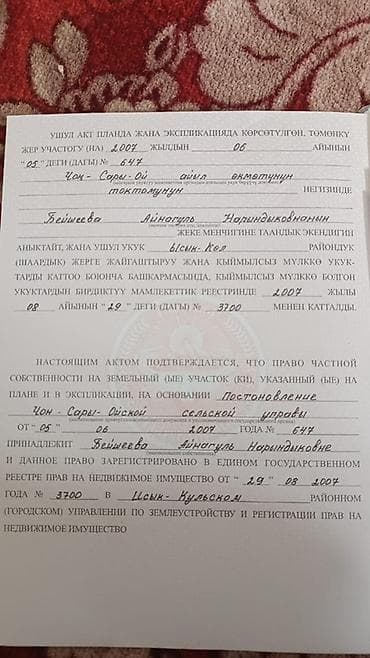 УШУЛ АКТ ПЛАНДА ЖАНА ЭКСПЛИКАЦИЯДА КӨРСӨТҮЛГӨН, ТӨМӨНКҮ
ЖЕР УЧАСТОГУ (НА) 2007 ЖЫЛДЫН 06 АЙЫНЫН
"05" ДЕГИ (ДАГЫ) № 647
Чоң-Сары-Ой айыл өкмөтүнүн
токтомунун НЕГИЗИНДЕ
Бейшеева Айнагуль Нариндыковнанын
ЖЕКЕ МЕНЧИГИНЕ ТААНДЫК ЭКЕНДИГИН
АНЫКТАЙТ, ЖАНА УШУЛ УКУК Ысык-Көл РАЙОНДУК
(ШААРДЫК) ЖЕРГЕ ЖАЙГАШТЫРУУ ЖАНА КЫЙМЫЛСЫЗ МҮЛККӨ УКУК-
ТАРДЫ КАТТОО БОЮНЧА БАШКАРМАСЫНДА, КЫЙМЫЛСЫЗ МҮЛККӨ БОЛГОН
УКУКТАРДЫН БИРДИКТҮҮ МАМЛЕКЕТТИК РЕЕСТРИНДЕ 2007 ЖЫЛЫ
08 АЙЫНЫН "29" ДЕГИ (ДАГЫ) № 3700 МЕНЕН КАТТАЛДЫ.
НАСТОЯЩИМ АКТОМ ПОДТВЕРЖДАЕТСЯ, ЧТО ПРАВО ЧАСТНОЙ
СОБСТВЕННОСТИ НА ЗЕМЕЛЬНЫЙ (ЫЕ) УЧАСТОК (КИ), УКАЗАННЫЙ (ЫЕ) НА
ПЛАНЕ И В ЭКСПЛИКАЦИИ, НА ОСНОВАНИИ Постановление
Чон-Сары-Ойской сельской управы
ОТ "05" 06 2007 ГОДА № 647
ПРИНАДЛЕЖИТ Бейшеева Айнагуль Нариндыковне
(наименование собственника)
И ДАННОЕ ПРАВО ЗАРЕГИСТРИРОВАНО В ЕДИНОМ ГОСУДАРСТВЕННОМ
РЕЕСТРЕ ПРАВ НА НЕДВИЖИМОЕ ИМУЩЕСТВО ОТ "29" 08 2007
ГОДА № 3700 В Исык-Кульском РАЙОННОМ
(ГОРОДСКОМ) УПРАВЛЕНИИ ПО ЗЕМЛЕУСТРОЙСТВУ И РЕГИСТРАЦИИ ПРАВ НА
НЕДВИЖИМОЕ ИМУЩЕСТВО